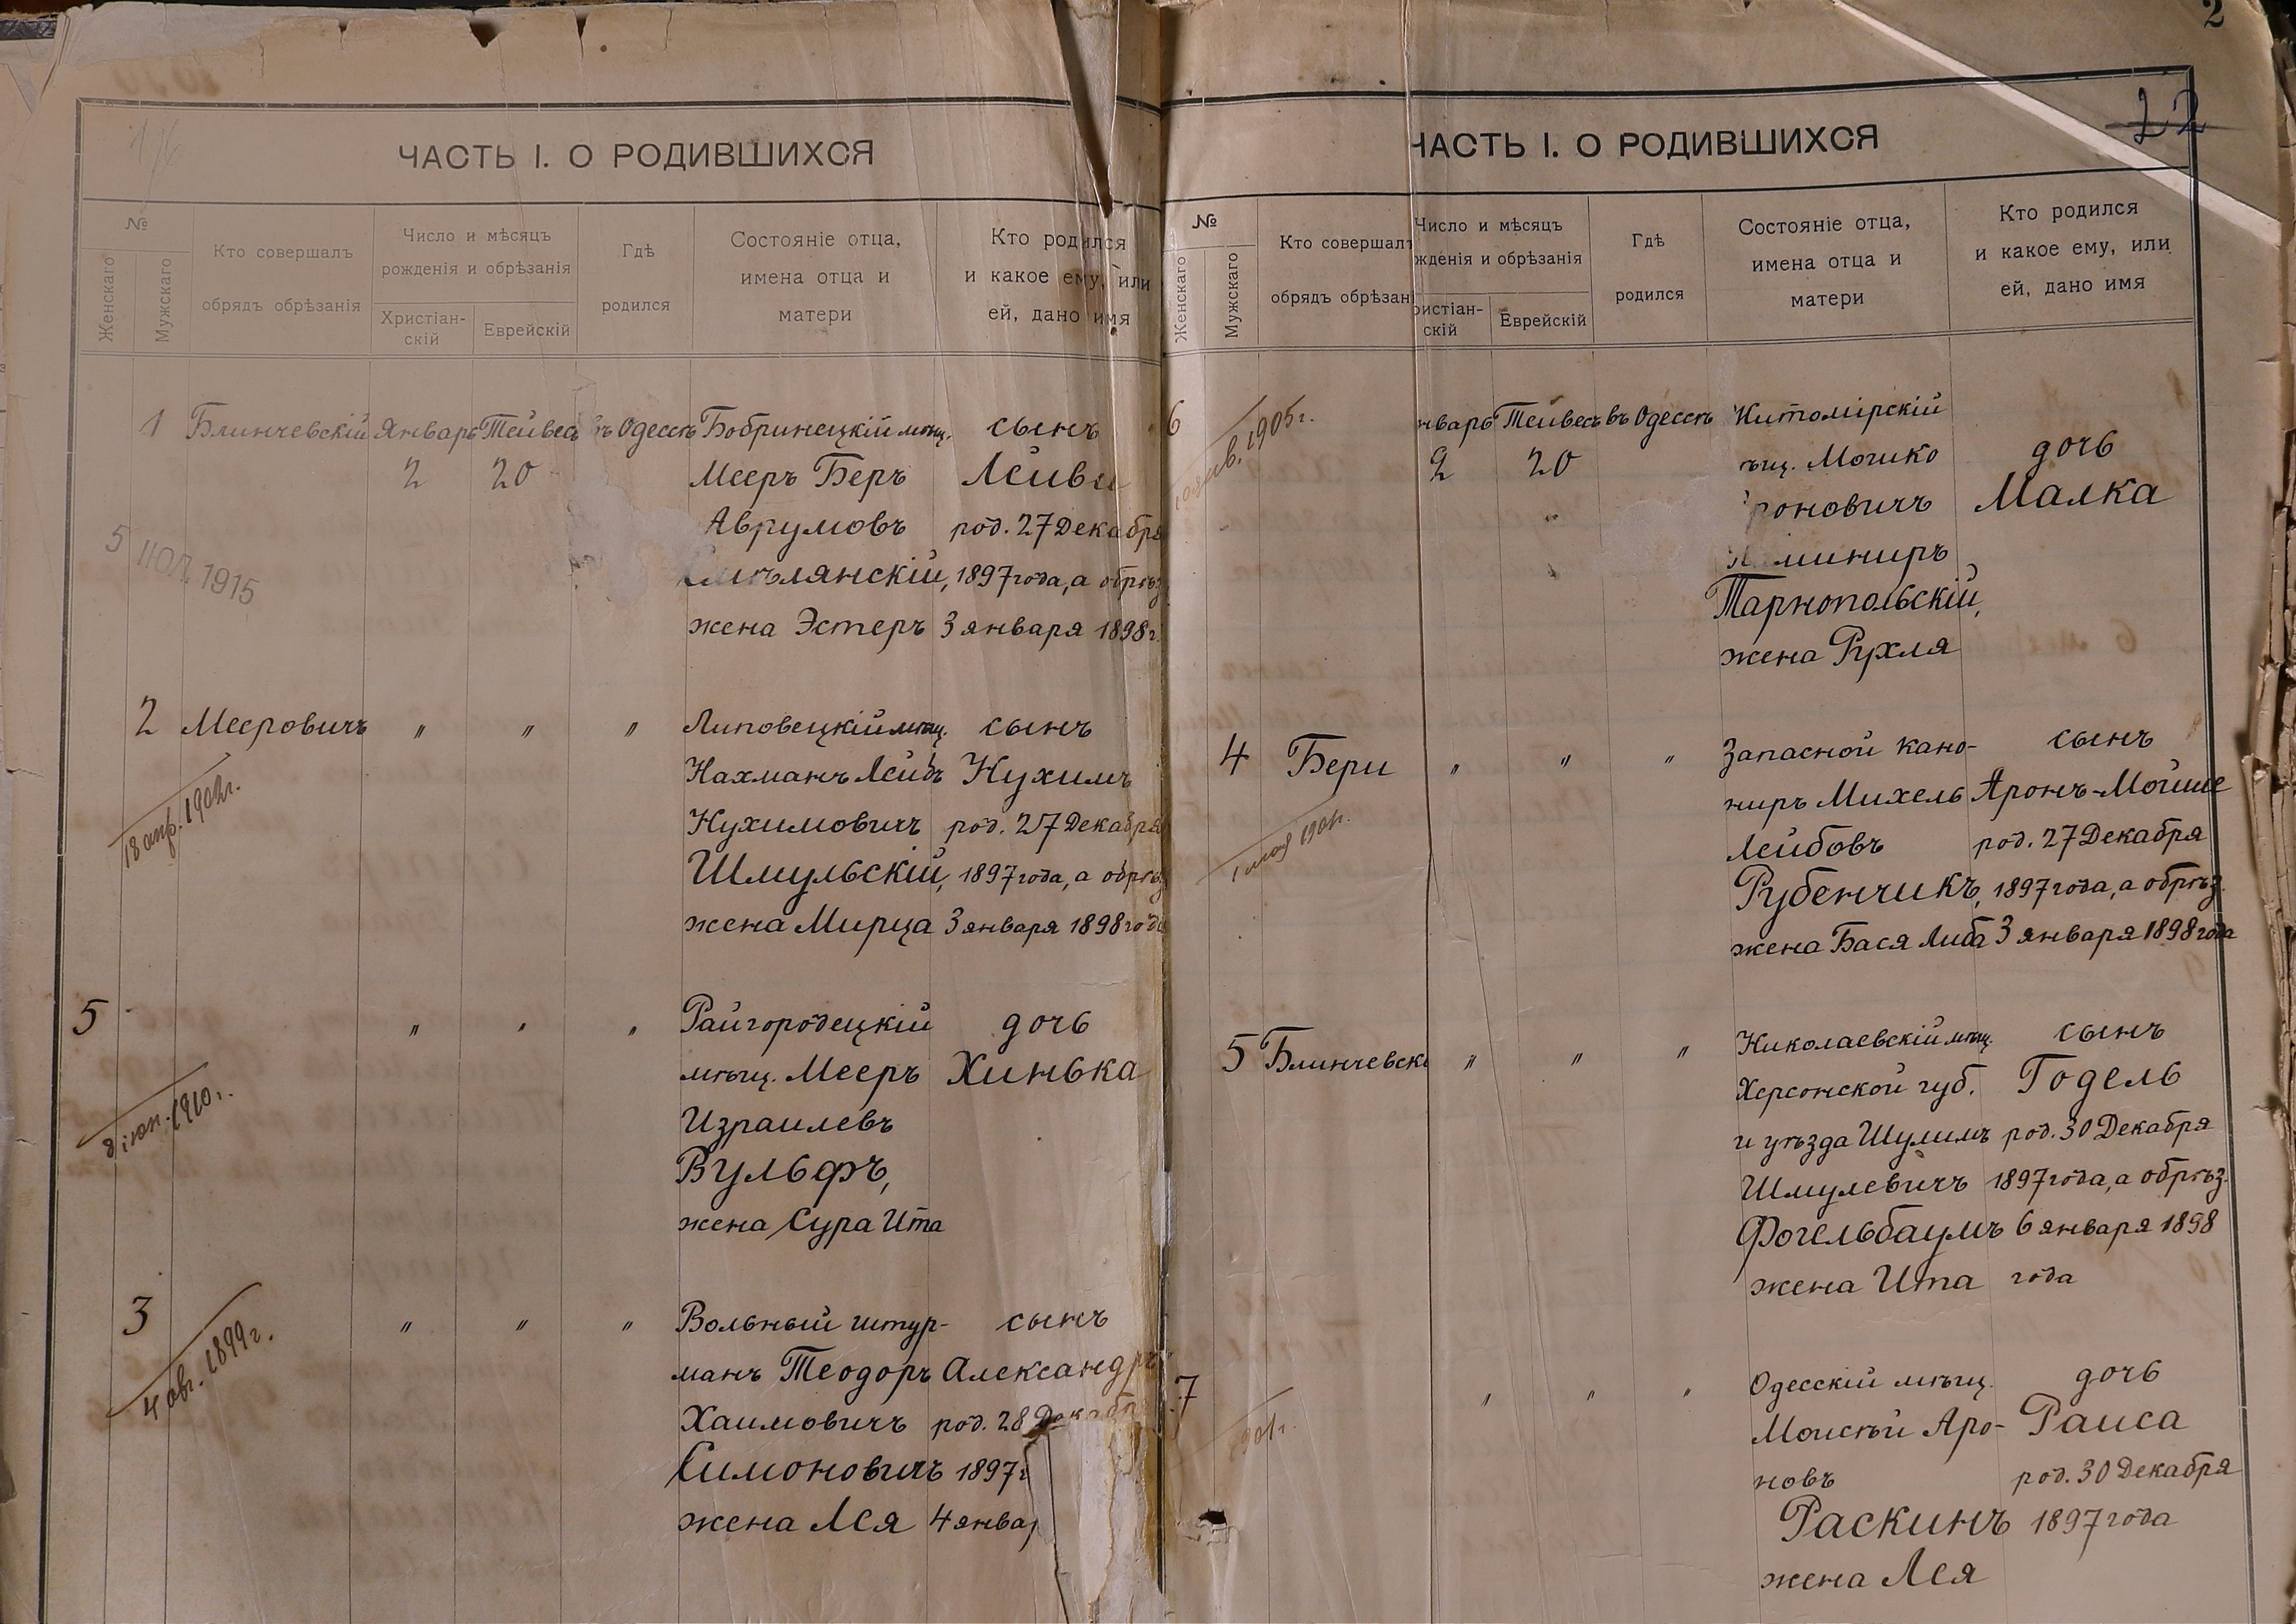 2
22
ЧАСТЬ I. О РОДИВШИХСЯ
№
Женскаго
Мужскаго
Кто совершалъ
обрядъ обрѣзанія
Число и мѣсяцъ
рожденія и обрѣзанія
Христіан-
скій
Еврейскій
Гдѣ
родился
Состояніе отца,
имена отца и
матери
Кто родился
и какое ему, или
ей, дано имя
1 Блинчевскій Январь Тейвесъ въ Одессѣ Бобринецкій мѣщ. сынъ
2 20 Мееръ Беръ Лейви
Аврумовъ род. 27 Декабря
5 ІЮЛ 1915
1897 года, а обрѣз.
жена Эстеръ 3 января 1898 г.
2 Мееровичъ " " " Липовецкій мѣщ. сынъ
Нахманъ Лейбъ Нухимъ
18 апр. 1902г.
Нухимовичъ род. 27 Декабря
Шмульскій, 1897 года, а обрѣз
жена Мирца 3 января 1898 года
5 " " " Райгородецкій дочь
мѣщ. Мееръ Хинька
1910г.
Израилевъ
Вульфъ,
жена Сура Ита
3 " " " Вольный штур- сынъ
4 авг. 1899г.
манъ Теодоръ Александръ
Хаимовичъ род. 28 Декабр
Симоновичъ 1897 г
жена Лея 4 январ
ЧАСТЬ I. О РОДИВШИХСЯ
№
Женскаго
Мужскаго
Кто совершалъ
обрядъ обрѣзані
Число и мѣсяцъ
жденія и обрѣзанія
ристіан-
скій
Еврейскій
Гдѣ
родился
Состояніе отца,
имена отца и
матери
Кто родился
и какое ему, или
ей, дано имя
6 янв. 1905г. нварь Тейвесъ въ Одессѣ Житомірскій
2 20 ѣщ. Мошко дочь
роновичъ Малка
Тарнопольскій,
жена Рухля
4 Бери " " " Запасной кано- сынъ
ниръ Михель Аронъ-Мойше
1 мая 1901г.
Лейбовъ род. 27 Декабря
Рубенчикъ, 1897 года, а обрѣз.
жена Бася Либа 3 января 1898 года
5 Блинчевскі " " " Николаевскій мѣщ. сынъ
Херсонской губ. Годель
и уѣзда Шулимъ род. 30 Декабря
Шмулевичъ 1897 года, а обрѣз.
Фогельбаумъ 6 января 1898
жена Ита года
7 " " " Одесскій мѣщ. дочь
901г.
Моисѣй Аро- Раиса
новъ род. 30 Декабря
Раскинъ 1897 года
жена Лея